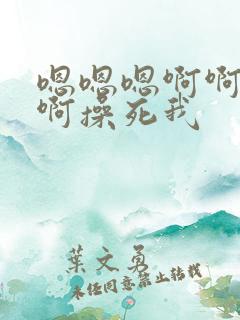 嗯嗯嗯啊啊
啊操死我
葉文勇
未经同意禁止转载